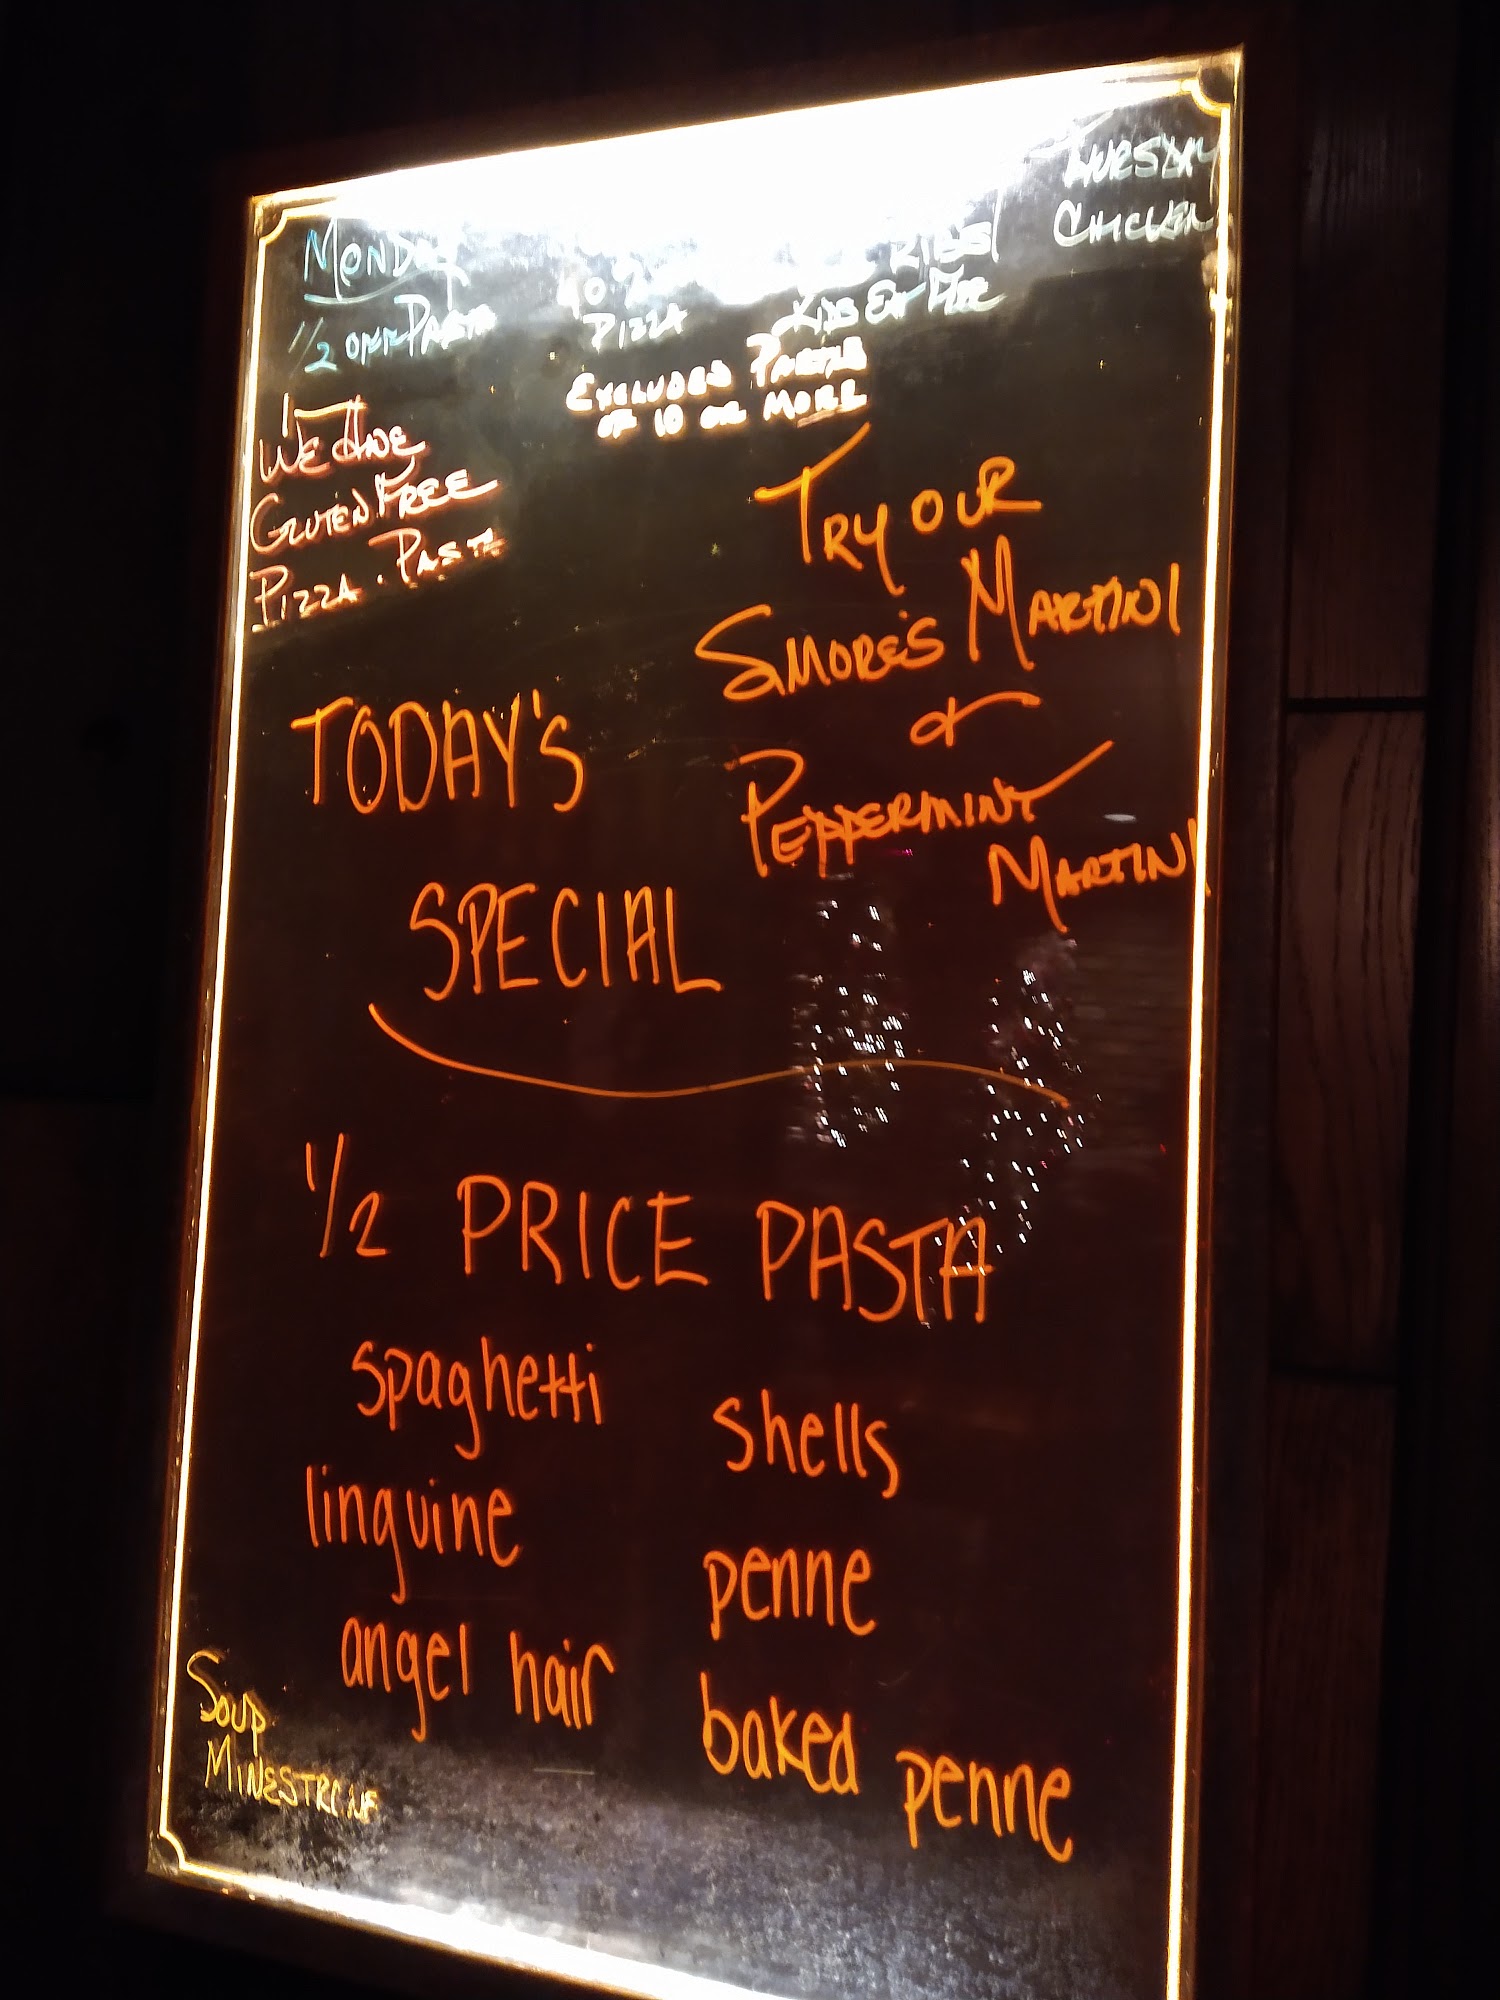 MONDAY
1/2 OFF PASTA
PIZZA
RIBS
KIDS EAT FREE
THURSDAY
CHICKEN
EXCLUDES PARTIES
OF 10 OR MORE
WE HAVE
GLUTEN FREE
PIZZA . PASTA
TRY OUR
SMORE'S MARTINI
&
PEPPERMINT
MARTINI
TODAY'S
SPECIAL
1/2 PRICE PASTA
spaghetti
linguine
angel hair
shells
penne
baked penne
SOUP
MINESTRONE